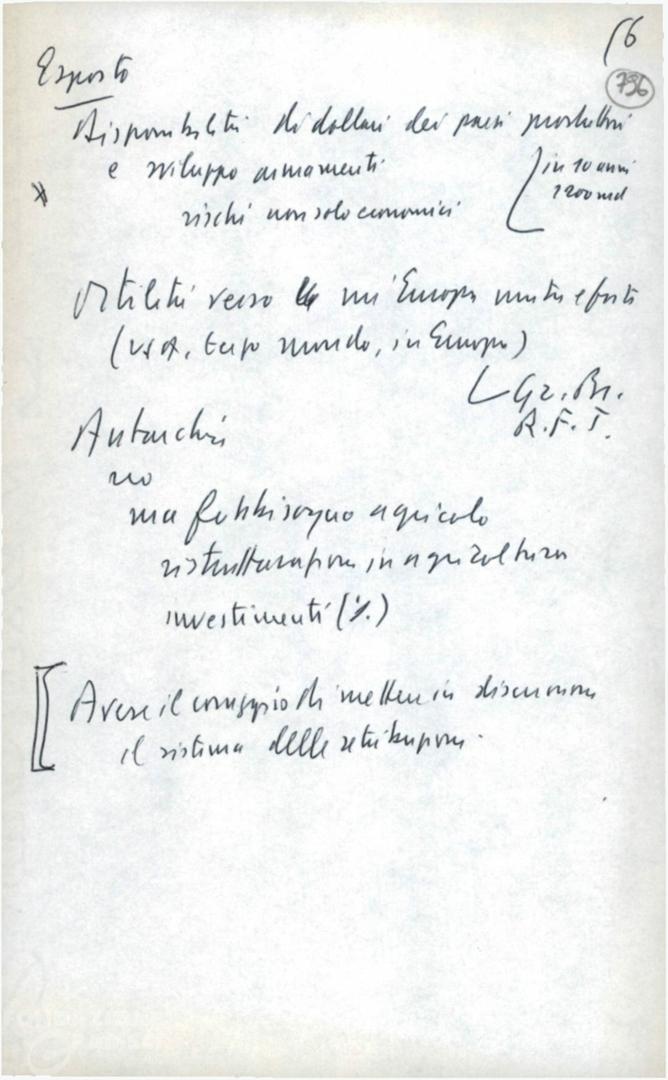 16
786
Esposto
Disponibilità di dollari dei paesi produttori
e sviluppo armamenti
in 10 anni
1200 md
rischi non solo economici
Ostilità verso un'Europa unita e forte
(USA, terzo mondo, in Europa)
Gr. Br.
R.F.T.
Autarchia
no
ma fabbisogno agricolo
ristrutturazione in agricoltura
investimenti (%)
Avere il coraggio di mettere in discussione
il sistema delle retribuzioni.